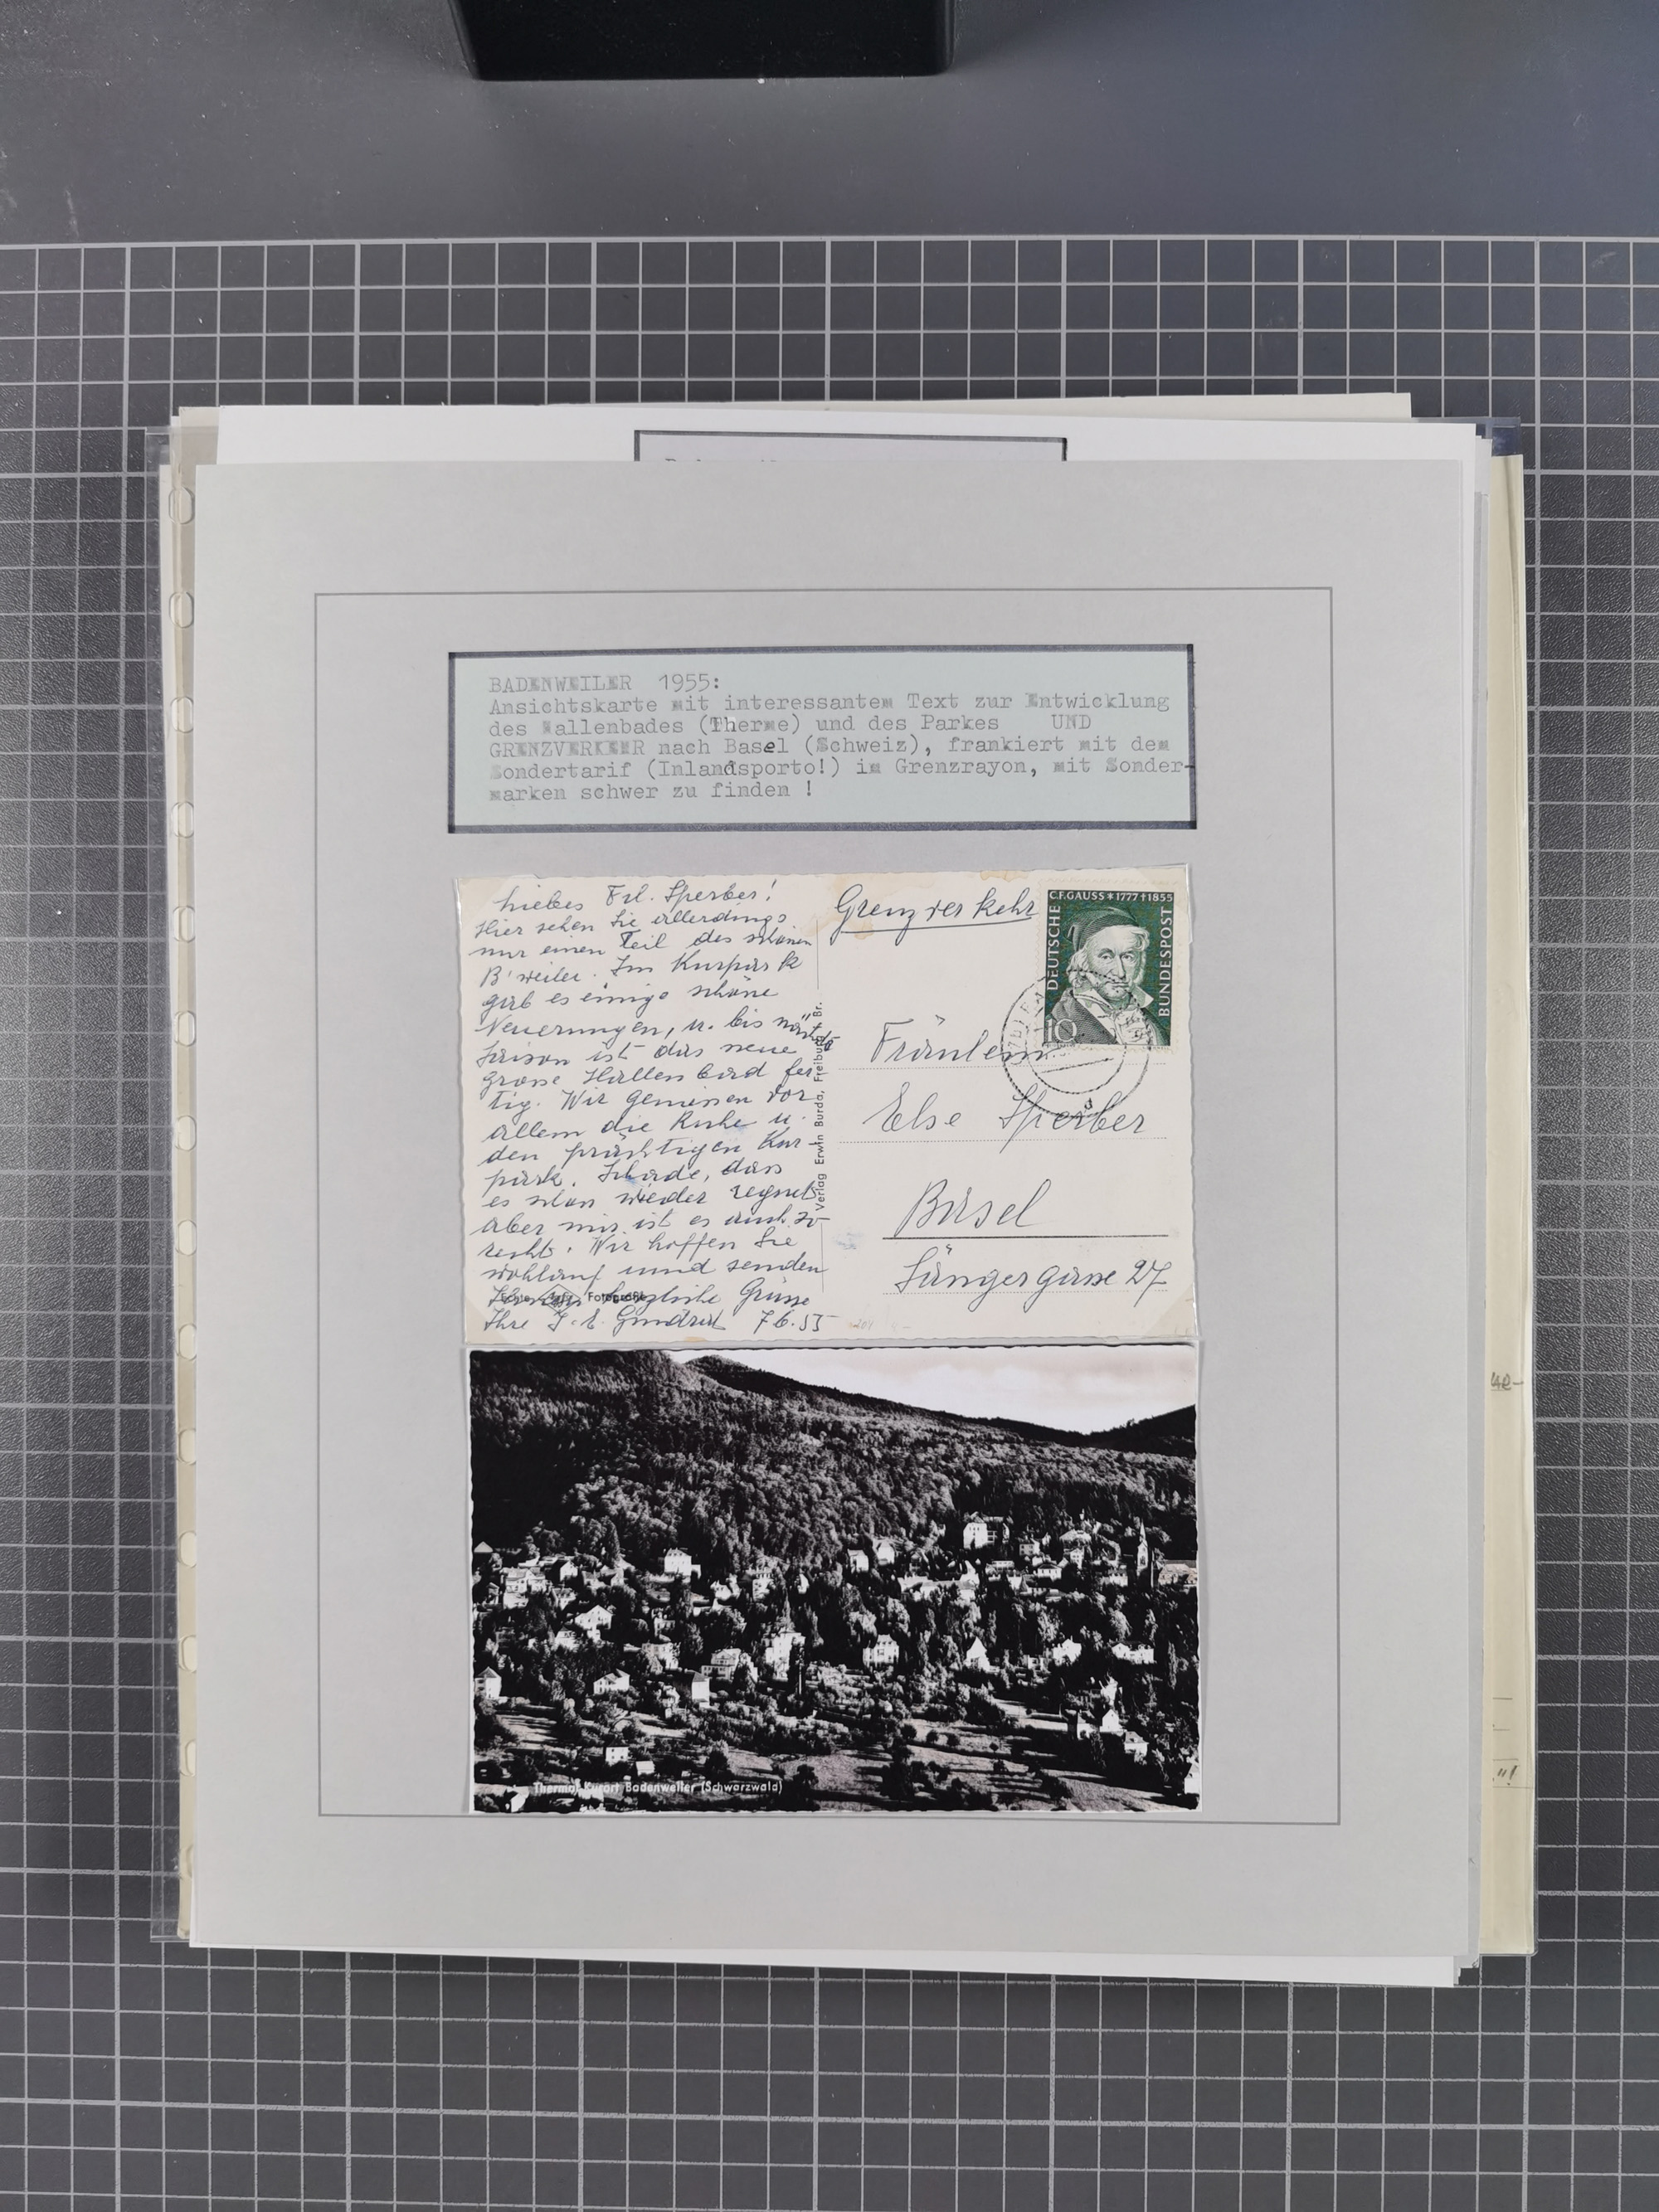 BADENWEILER 1955:
Ansichtskarte mit interessantem Text zur Entwicklung
des Hallenbades (Therme) und des Parkes UND
GRENZVERKEHR nach Basel (Schweiz), frankiert mit dem
Sondertarif (Inlandsporto!) im Grenzrayon, mit Sonder-
marken schwer zu finden !
Liebes Frl. Sperber!
Hier sehen Sie allerdings
nur einen Teil des schönen
B'weiler. Im Kurpark
gab es einige schöne
Neuerungen, u. bis nächste
Saison ist das neue
grosse Hallenbad fer-
tig. Wir geniessen vor
allem die Ruhe u.
den prächtigen Kur-
park. Schade, dass
es schon wieder regnet
aber mir ist es auch so
recht. Wir hoffen Sie
wohlauf und senden
Ihnen herzliche Grüsse
Ihre 7.6.55
Echte Fotografie
Verlag Erwin Burda, Freiburg i. Br.
Grenzverkehr
C.F.GAUSS * 1777 † 1855
DEUTSCHE
BUNDESPOST
10
Fräulein
Else Sperber
Basel
Sängergasse 27
Thermal-Kurort Badenweiler (Schwarzwald)